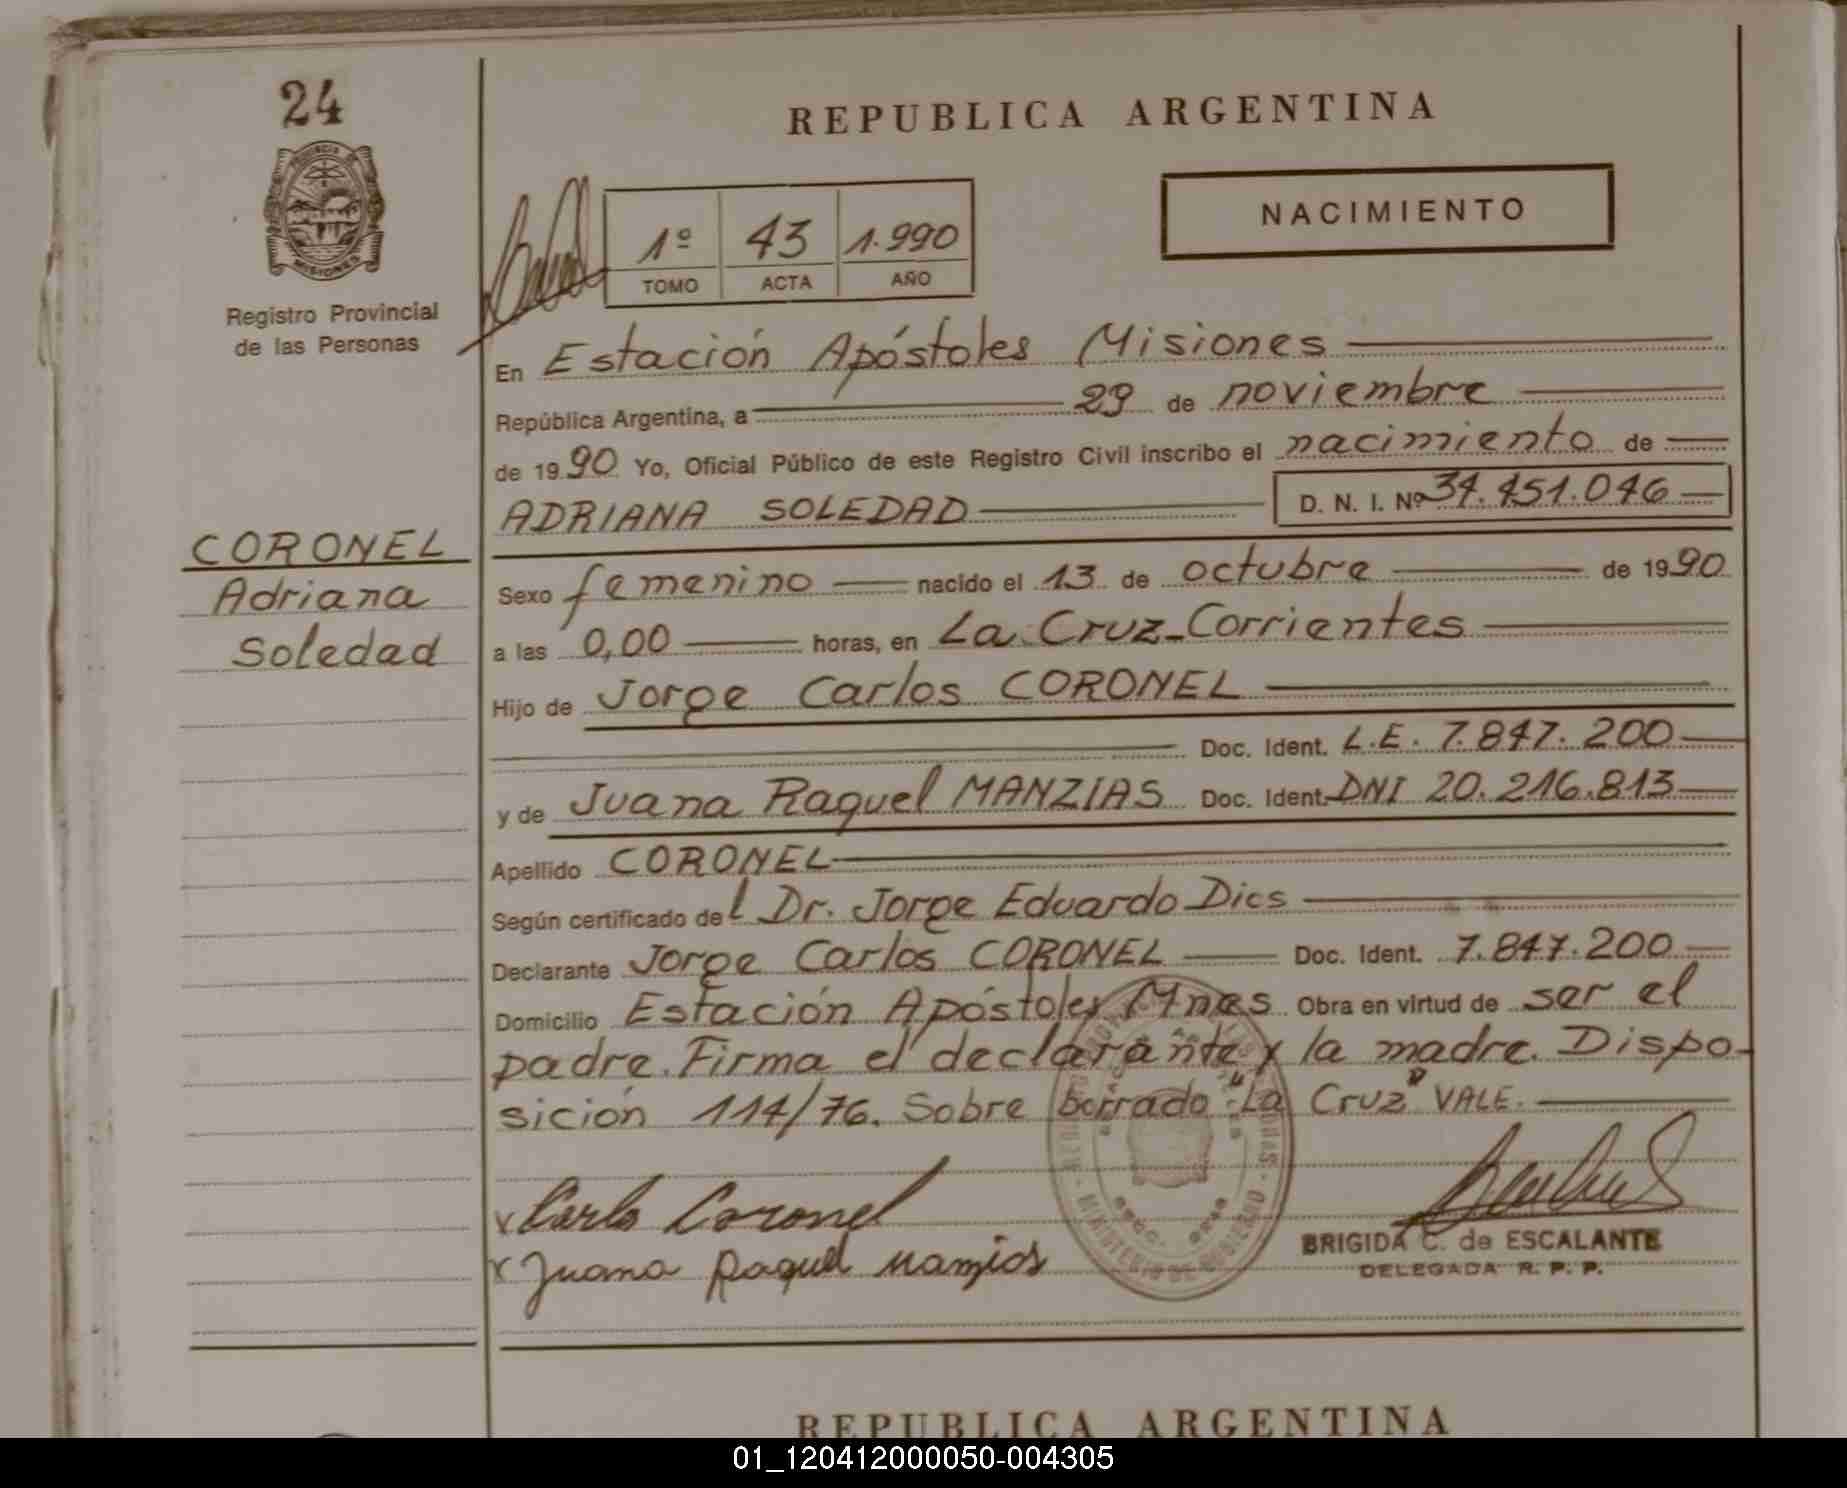 24
REPUBLICA ARGENTINA
PROVINCIA DE
MISIONES
Registro Provincial
de las Personas
1º 43 1.990
TOMO ACTA AÑO
NACIMIENTO
En Estación Apóstoles Misiones
República Argentina, a 29 de noviembre
de 1990 Yo, Oficial Público de este Registro Civil inscribo el nacimiento de
ADRIANA SOLEDAD D. N. I. Nº 34.451.046
CORONEL
Adriana
Soledad
Sexo femenino nacido el 13 de octubre de 1990
a las 0,00 horas, en La Cruz-Corrientes
Hijo de Jorge Carlos CORONEL
Doc. Ident. L.E. 7.847.200
y de Juana Raquel MANZIAS Doc. Ident. DNI 20.216.813
Apellido CORONEL
Según certificado del Dr. Jorge Eduardo Dics
Declarante Jorge Carlos CORONEL Doc. Ident. 7.847.200
Domicilio Estación Apóstoles Mnes Obra en virtud de ser el
padre. Firma el declarante y la madre. Dispo-
sición 114/76. Sobre borrado "La Cruz" VALE.
x Carlo Coronel
x Juana Raquel Manzios
MINISTERIO DE GOBIERNO
BRIGIDA C. de ESCALANTE
DELEGADA R. P. P.
REPUBLICA ARGENTINA
01_120412000050-004305